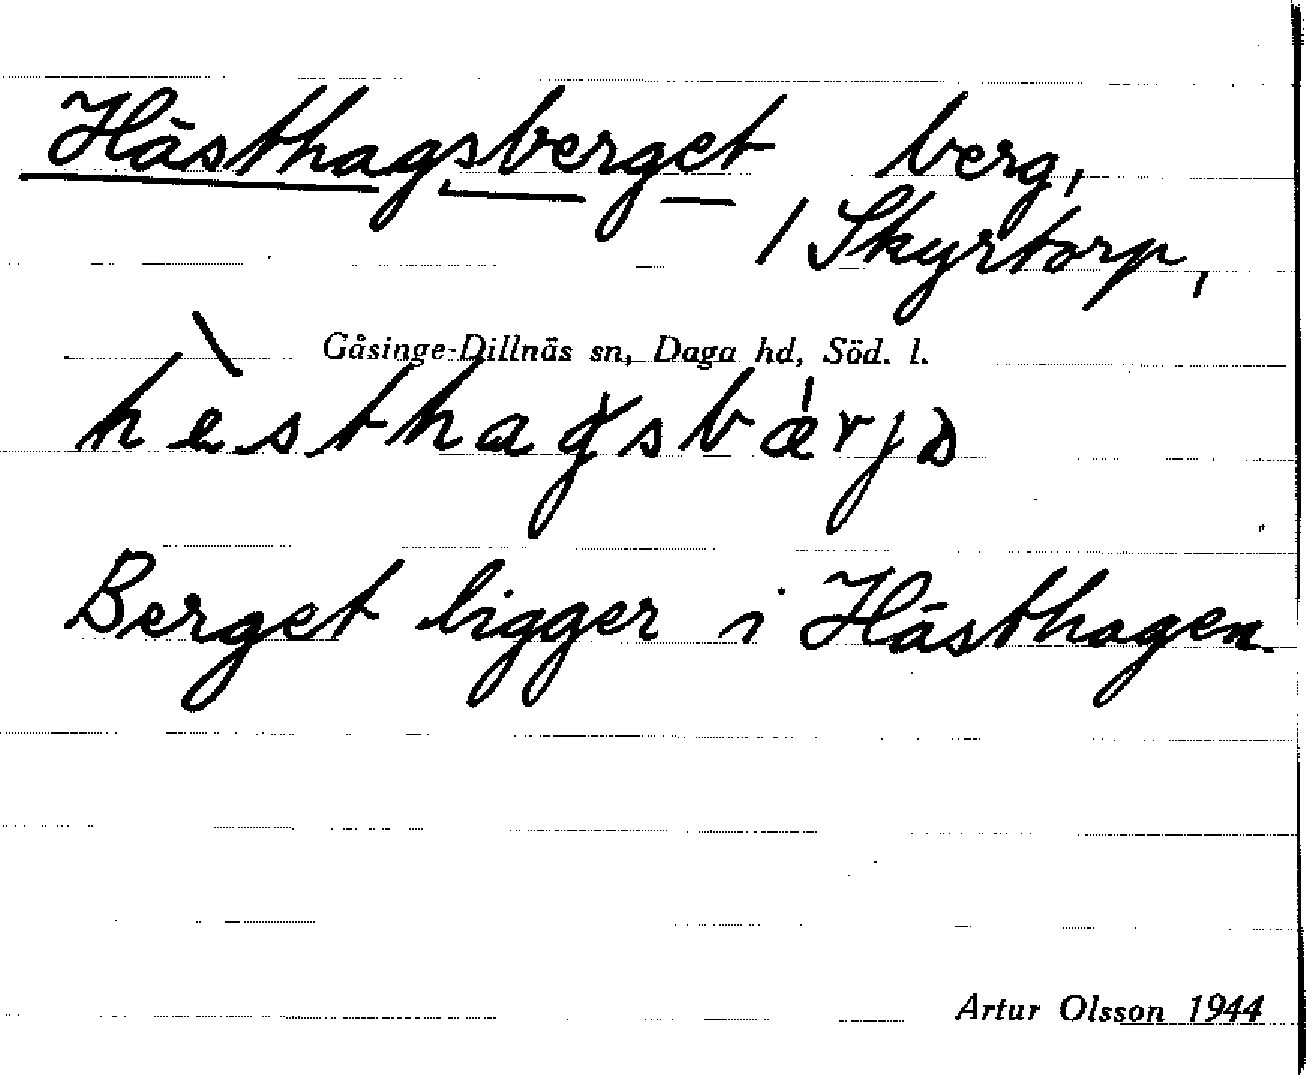 Hästhagsberget berg,
/ Skyrtorp,
Gåsinge-Dillnäs sn, Daga hd, Söd. l.
Berget ligger i Hästhagen.
Artur Olsson 1944